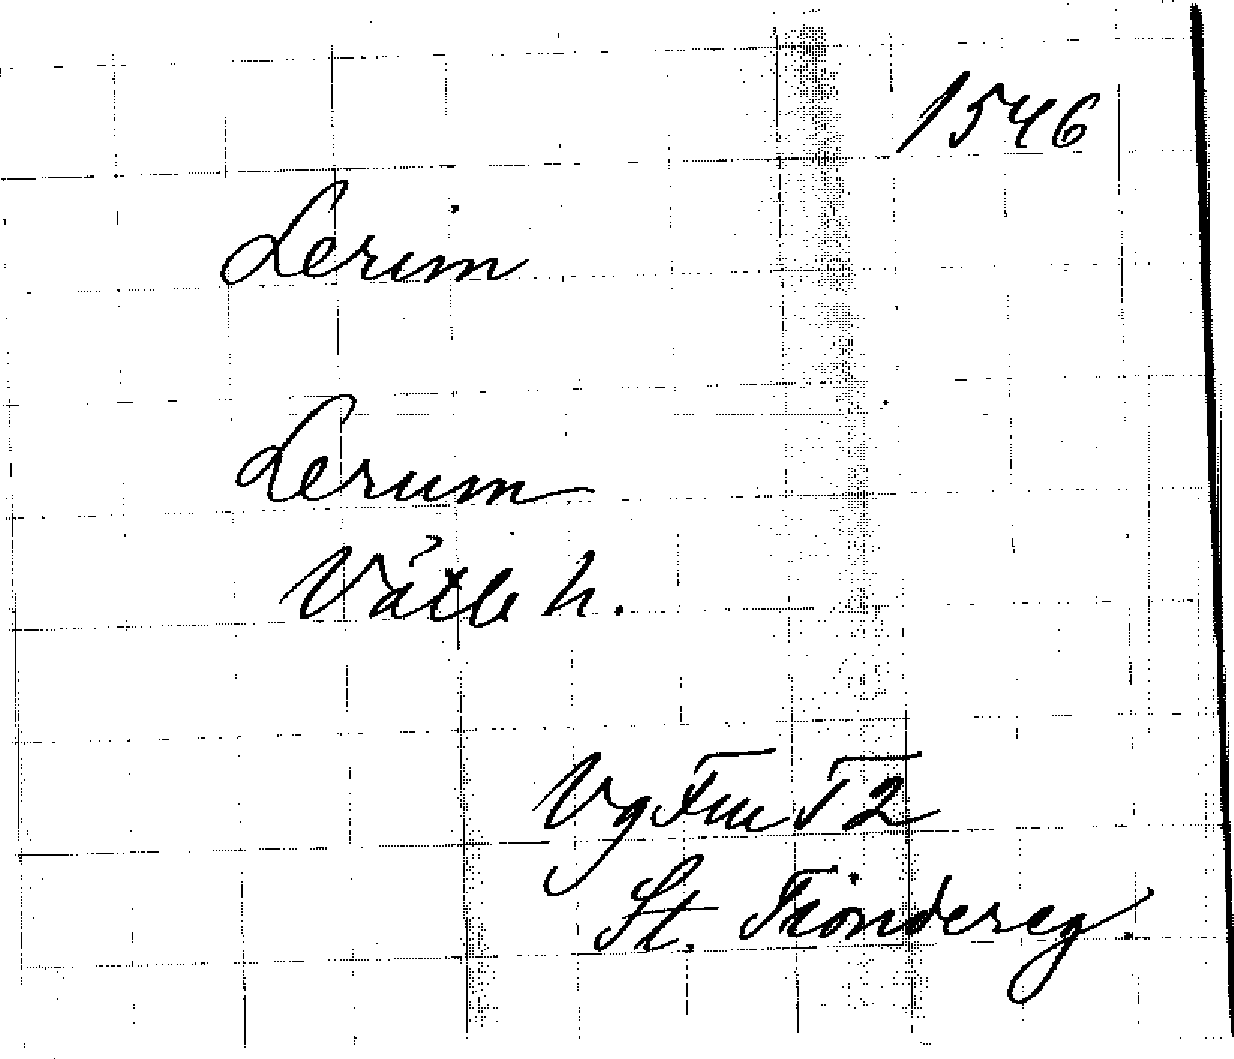 1546
Lerim
Lerum
Vätle h.
Vg Fru T2
St. Tiondereg.